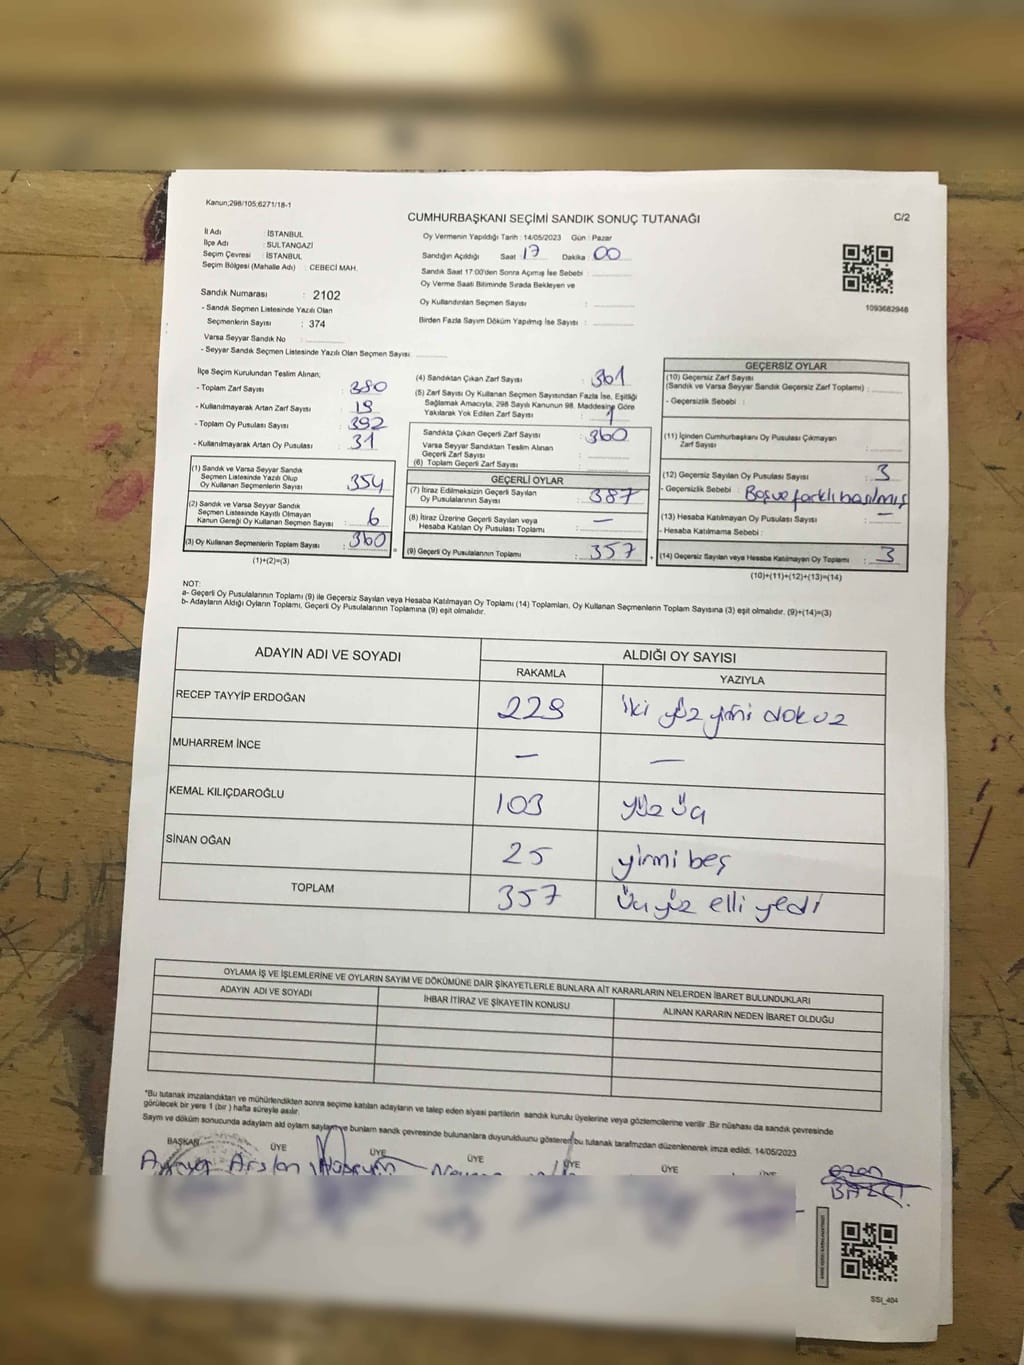 Kanun;298/105;6271/18-1
CUMHURBAŞKANI SEÇİMİ SANDIK SONUÇ TUTANAĞI
C/2
İl Adı : İSTANBUL
İlçe Adı : SULTANGAZİ
Seçim Çevresi : İSTANBUL
Seçim Bölgesi (Mahalle Adı) : CEBECİ MAH.
Oy Vermenin Yapıldığı Tarih : 14/05/2023 Gün : Pazar
Sandığın Açıldığı Saat : 17 Dakika : 00
Sandık Saat 17:00'den Sonra Açımış İse Sebebi :
Oy Verme Saati Bitiminde Sırada Bekleyen ve
Oy Kullandırılan Seçmen Sayısı :
Birden Fazla Sayım Döküm Yapılmış İse Sayısı :
1093682948
Sandık Numarası : 2102
- Sandık Seçmen Listesinde Yazılı Olan
Seçmenlerin Sayısı : 374
Varsa Seyyar Sandık No :
- Seyyar Sandık Seçmen Listesinde Yazılı Olan Seçmen Sayısı
İlçe Seçim Kurulundan Teslim Alınan;
- Toplam Zarf Sayısı : 380
- Kullanılmayarak Artan Zarf Sayısı : 19
- Toplam Oy Pusulası Sayısı : 392
- Kullanılmayarak Artan Oy Pusulası : 31
(1) Sandık ve Varsa Seyyar Sandık
Seçmen Listesinde Yazılı Olup
Oy Kullanan Seçmenlerin Sayısı : 354
(2) Sandık ve Varsa Seyyar Sandık
Seçmen Listesinde Kayıtlı Olmayan
Kanun Gereği Oy Kullanan Seçmen Sayısı : 6
(3) Oy Kullanan Seçmenlerin Toplam Sayısı : 360
(1)+(2)=(3)
(4) Sandıktan Çıkan Zarf Sayısı : 361
(5) Zarf Sayısı Oy Kullanan Seçmen Sayısından Fazla İse, Eşitliği
Sağlamak Amacıyla, 298 Sayılı Kanunun 98. Maddesine Göre
Yakılarak Yok Edilen Zarf Sayısı : 1
Sandıkta Çıkan Geçerli Zarf Sayısı : 360
Varsa Seyyar Sandıktan Teslim Alınan
Geçerli Zarf Sayısı :
(6) Toplam Geçerli Zarf Sayısı :
GEÇERLİ OYLAR
(7) İtiraz Edilmeksizin Geçerli Sayılan
Oy Pusulalarının Sayısı : 387
(8) İtiraz Üzerine Geçerli Sayılan veya
Hesaba Katılan Oy Pusulası Toplamı : —
(9) Geçerli Oy Pusulalarının Toplamı : 357
GEÇERSİZ OYLAR
(10) Geçersiz Zarf Sayısı
(Sandık ve Varsa Seyyar Sandık Geçersiz Zarf Toplamı) :
- Geçersizlik Sebebi :
(11) İçinden Cumhurbaşkanı Oy Pusulası Çıkmayan
Zarf Sayısı :
(12) Geçersiz Sayılan Oy Pusulası Sayısı : 3
- Geçersizlik Sebebi : Boş ve farklı basılmış
(13) Hesaba Katılmayan Oy Pusulası Sayısı : —
- Hesaba Katılmama Sebebi :
(14) Geçersiz Sayılan veya Hesaba Katılmayan Oy Toplamı : 3
(10)+(11)+(12)+(13)=(14)
NOT:
a- Geçerli Oy Pusulalarının Toplamı (9) ile Geçersiz Sayılan veya Hesaba Katılmayan Oy Toplamı (14) Toplamları, Oy Kullanan Seçmenlerin Toplam Sayısına (3) eşit olmalıdır. (9)+(14)=(3)
b- Adayların Aldığı Oyların Toplamı, Geçerli Oy Pusulalarının Toplamına (9) eşit olmalıdır.
ADAYIN ADI VE SOYADI
ALDIĞI OY SAYISI
RAKAMLA
YAZIYLA
RECEP TAYYİP ERDOĞAN 229 iki yüz yirmi dokuz
MUHARREM İNCE — —
KEMAL KILIÇDAROĞLU 103 yüz üç
SİNAN OĞAN 25 yirmi beş
TOPLAM 357 üç yüz elli yedi
OYLAMA İŞ VE İŞLEMLERİNE VE OYLARIN SAYIM VE DÖKÜMÜNE DAİR ŞİKAYETLERLE BUNLARA AİT KARARLARIN NELERDEN İBARET BULUNDUKLARI
ADAYIN ADI VE SOYADI
İHBAR İTİRAZ VE ŞİKAYETİN KONUSU
ALINAN KARARIN NEDEN İBARET OLDUĞU
*Bu tutanak imzalandıktan ve mühürlendikten sonra seçime katılan adayların ve talep eden siyasi partilerin sandık kurulu üyelerine veya gözlemcilerine verilir .Bir nüshası da sandık çevresinde
görülecek bir yere 1 (bir ) hafta süreyle asılır.
Sayım ve döküm sonucunda adayların aldı oyların sayıları ve bunların sandk çevresinde bulunanlara duyurulduunu gösteren bu tutanak tarafmzdan düzenlenerek imza edildi. 14/05/2023
BAŞKAN ÜYE ÜYE ÜYE ÜYE ÜYE
Arslan Hüseyin
SSI_404